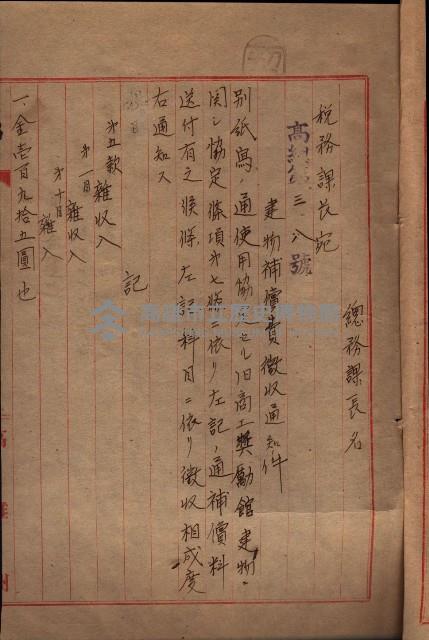 總務課長名
税務課長宛
高 三八號
建物補償費徴收通知件
別紙寫ノ通使用協定セル旧商工奬勵館建物ニ
関シ協定條項第七條ニ依リ左記ノ通補償料
送付有之候條左記科目ニ依リ徴收相成度
右通知ス
記
第五款 雜收入
第一項 雜收入
第十目 雜入
一、金壱百九拾五圓也
高雄市立歷史博物館